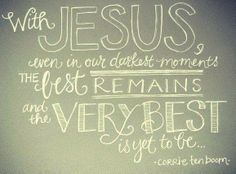 With JESUS,
even in our darkest moments
THE best REMAINS
and the VERY BEST
is yet to be...
- CORRIE TEN BOOM -